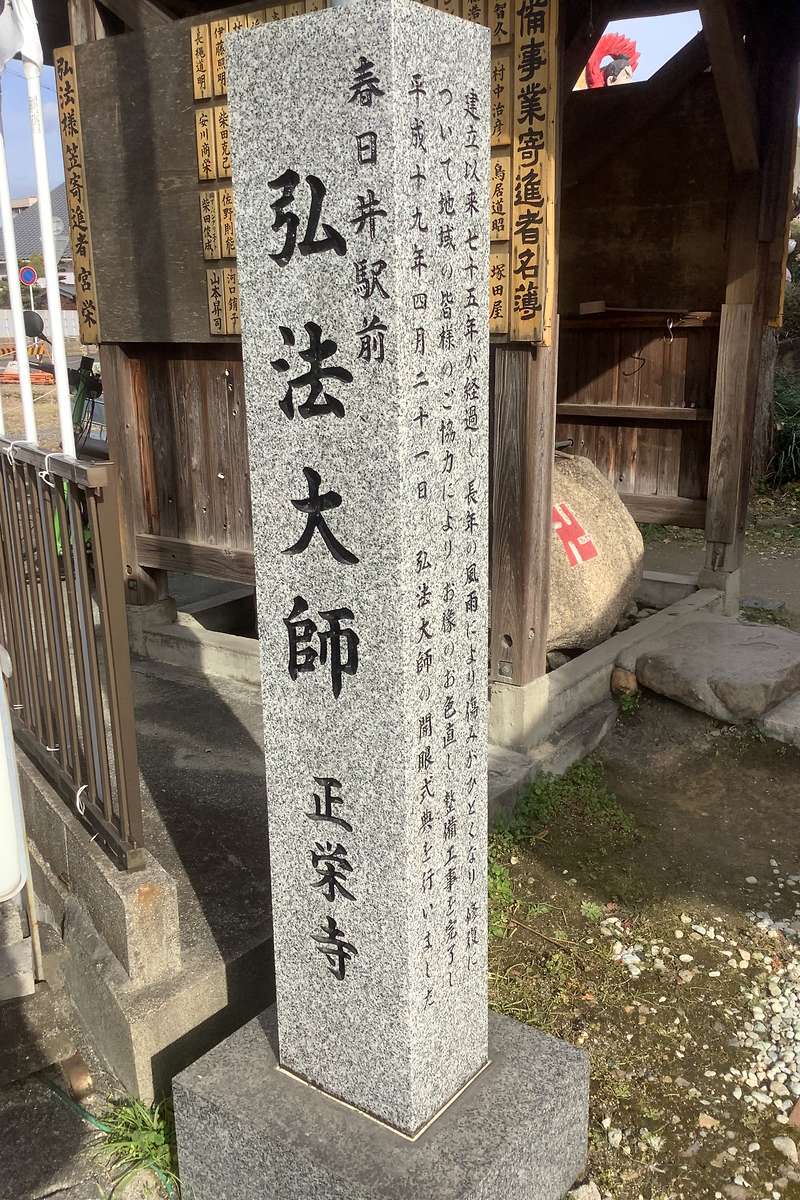 春日井駅前
弘法大師 正栄寺
建立以来七十五年が経過し 長年の風雨により傷みがひどくなり 修復に
ついて地域の皆様のご協力により お像のお色直し 整備工事を完了し
平成十九年四月二十一日 弘法大師の開眼式典を行いました
備事業寄進者名簿
智久
村中治彦
鳥居道昭
塚田屋
伊藤照明
柴田克己
佐野則能
長縄道明
安川商栄
柴田俊成
山本昇司
弘法様笠寄進者 宮栄